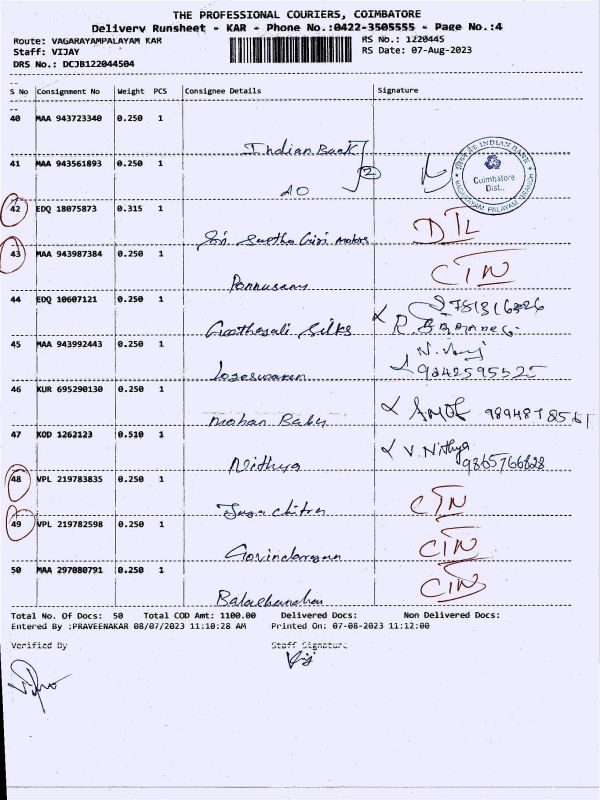 THE PROFESSIONAL COURIERS, COIMBATORE
Delivery Runsheet - KAR - Phone No.:0422-3505555 - Page No.:4
Route: VAGARAYAMPALAYAM KAR
RS No.: 1220445
Staff: VIJAY
RS Date: 07-Aug-2023
DRS No.: DCJB122044504
S No Consignment No Weight PCS Consignee Details Signature
40 MAA 943723340 0.250 1
Indian Bank
41 MAA 943561893 0.250 1
2
AO
SOUTH INDIAN BANK
Coimbatore
Dist.,
VAGARAYAM PALAYAM BRANCH
42 EDQ 18075873 0.315 1
Sri
DTL
43 MAA 943987384 0.250 1
Ponnusamy
CTN
44 EDQ 10607121 0.250 1
Silks
45 MAA 943992443 0.250 1
Logeswaran
9842595525
46 KUR 695290130 0.250 1
Mohan Babu
47 KOD 1262123 0.510 1
Nithya
V. Nithya
9865766828
48 VPL 219783835 0.250 1
Jaya chitra
CTN
49 VPL 219782598 0.250 1
Govindarajan
CTN
50 MAA 297080791 0.250 1
Balachandran
CTN
Total No. Of Docs: 50 Total COD Amt: 1100.00 Delivered Docs: Non Delivered Docs:
Entered By :PRAVEENAKAR 08/07/2023 11:10:28 AM Printed On: 07-08-2023 11:12:00
Verified By Staff Signature